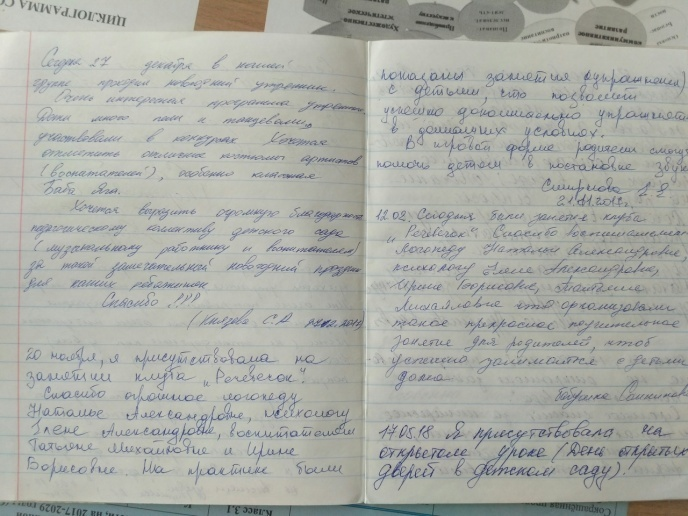 ЦИКЛОГРАММА
Сегодня 27 декабря в нашей
группе прошёл новогодний утренник.
Очень интересная программа утренника.
Дети много пели и танцевали,
участвовали в конкурсах. Хочется
отметить отличные костюмы артистов
(воспитателей), особенно классная
Баба Яга.
Хочется выразить огромную благодарность
педагогическому коллективу детского сада
(музыкальному работнику и воспитателям)
за такой замечательный новогодний праздник
для наших ребятишек
Спасибо !!!
(Князева С.А
20 ноября, я присутствовала на
занятии клуба „Речевичок".
Спасибо огромное логопеду
Наталье Александровне, психологу
Елене Александровне, воспитателям
Татьяне Михайловне и Ирине
Борисовне. На практике были
показаны занятия (упражнения)
с детьми, что позволит
успешно дополнительно упражняться
в домашних условиях.
В игровой форме родители смогут
помочь детям в постановке звуков
Смирнова
12.02. Сегодня было занятие клуба
„Речевичок". Спасибо воспитателям
логопеду Наталье Александровне,
психологу Елене Александровне,
Ирине Борисовне, Татьяне
Михайловне что организовали
такое прекрасное поучительное
занятие для родителей, чтоб
успешно заниматься с детьми
дома
17.05.18 Я присутствовала на
открытом уроке (День открытых
дверей в детском саду).
на 2017-2029
Класс 3.1